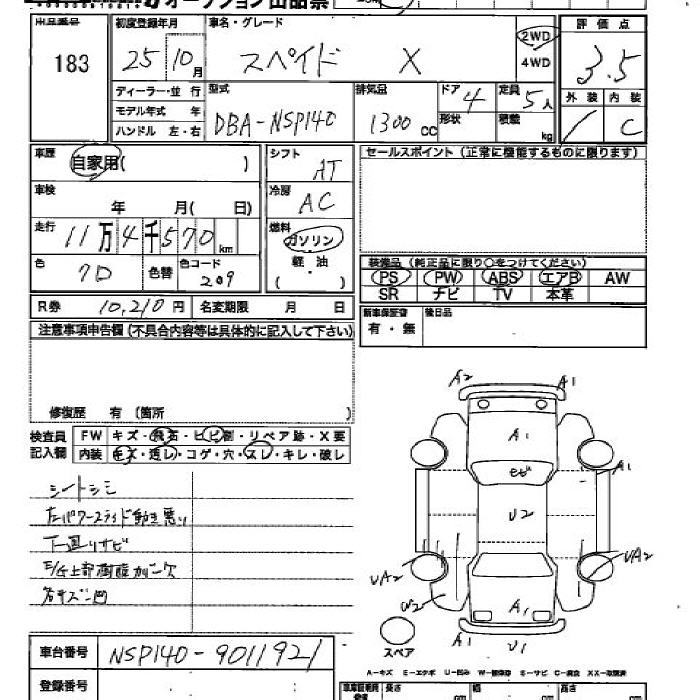 オークション出品票
出品番号
183
初度登録年月
25 10月
車名・グレード
スペイド X
2WD
4WD
評価点
3.5
外装 内装
/ C
ディーラー・並行
モデル年式 年
ハンドル 左・右
型式
DBA-NSP140
排気量
1300 CC
ドア 4
形状
定員 5人
積載 kg
車歴 自家用( )
シフト AT
セールスポイント (正常に機能するものに限ります)
車検
年 月( 日)
冷房 AC
走行 11万4千570km
燃料
ガソリン
軽・油
( )
色 クロ
色替
色コード 209
装備品 (純正品に限り○をつけてください)
PS PW ABS エアB AW
SR ナビ TV 本革
R券 10,210円 名変期限 月 日
新車保証書
有・無
後日品
注意事項申告欄 (不具合内容等は具体的に記入して下さい)
修復歴 有 (箇所 )
検査員
記入欄
FW キズ・飛石・ヒビ割・リペア跡・X要
内装 キズ・汚レ・コゲ・穴・スレ・キレ・破レ
シートシミ
左パワースライド動き悪い
下廻りサビ
A2 A1
A1
モビ
A1
U2
UA2 UA2
W2
A1
U1
スペア
A-キズ E-エクボ U-凹み W-補修跡 S-サビ C-腐食 XX-交換済
車台番号 NSP140-9011921
登録番号
長さ cm 幅 cm 高さ cm